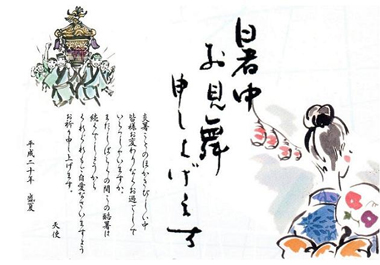 暑中
お見舞
申し上げます
炎暑ことのほかきびしい中
皆様お変わりなくお過ごしで
いらっしゃいますか。
まだしばらくの間この酷暑は
続くでしょうから
くれぐれもご自愛なさいますよう
お祈り申し上げます。
平成二十年 盛夏
天使